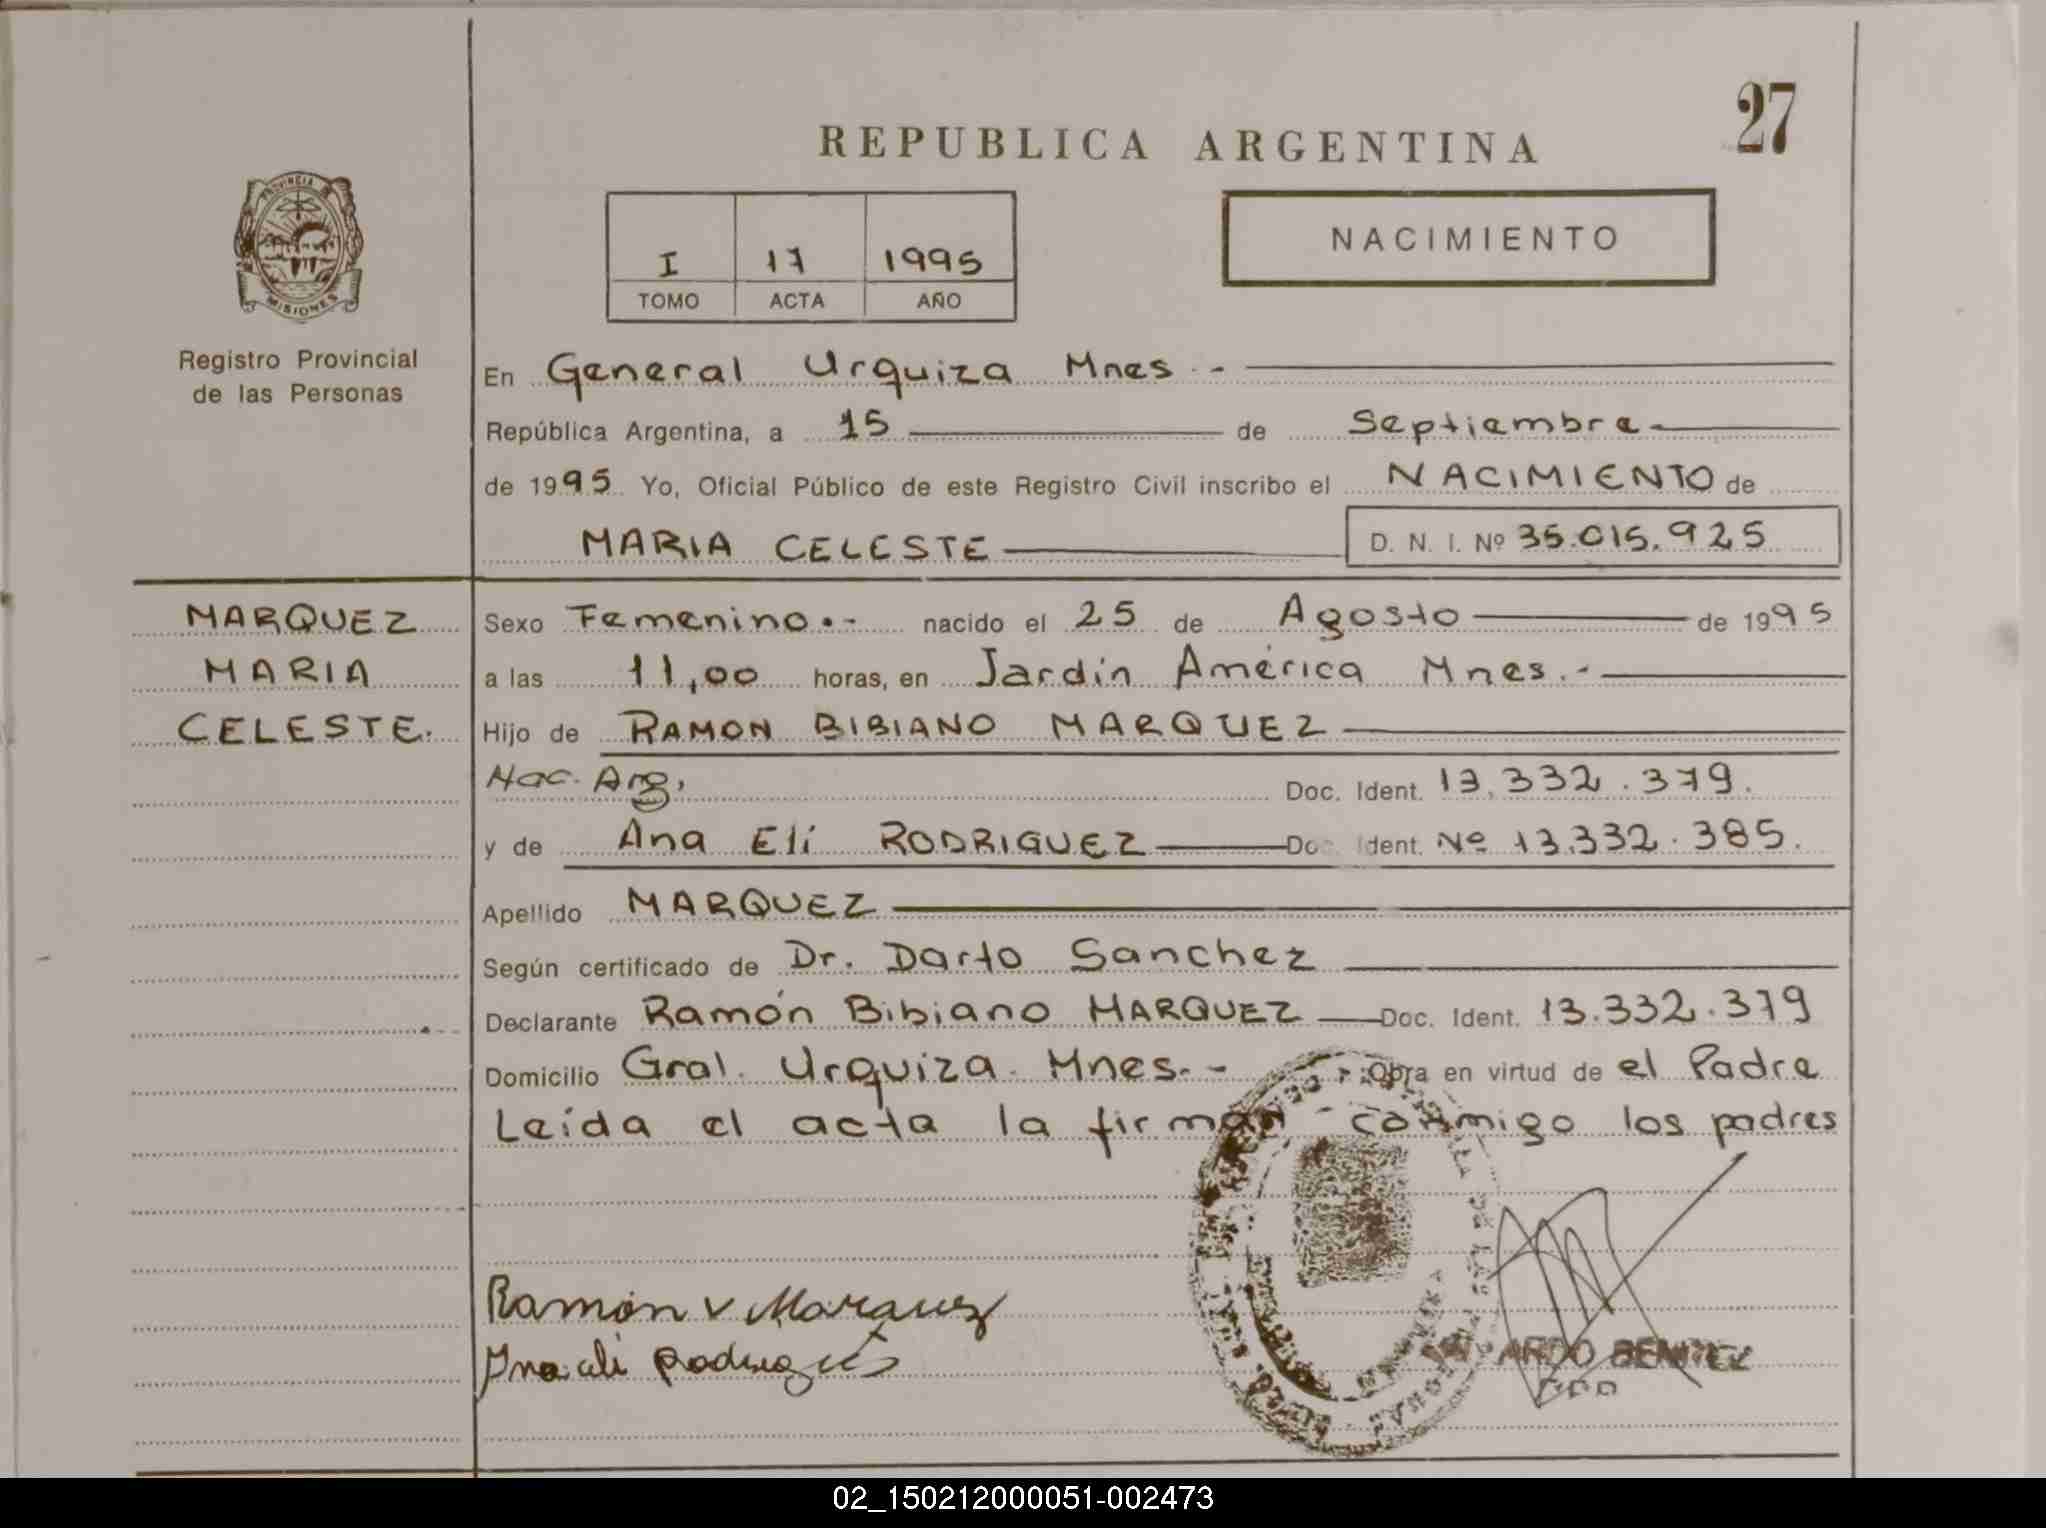 27
REPUBLICA ARGENTINA
PROVINCIA DE
MISIONES
Registro Provincial
de las Personas
I 17 1995
TOMO ACTA AÑO
NACIMIENTO
En General Urquiza Mnes.-
República Argentina, a 15 de Septiembre
de 1995 Yo, Oficial Público de este Registro Civil inscribo el NACIMIENTO de
MARIA CELESTE D. N. I. Nº 35.015.925
MARQUEZ
MARIA
CELESTE.
Sexo Femenino.- nacido el 25 de Agosto de 1995
a las 11,00 horas, en Jardín América Mnes.-
Hijo de RAMON BIBIANO MARQUEZ
Nac. Arg. Doc. Ident. 13.332.379.
y de Ana Elí RODRIGUEZ Doc. Ident. Nº 13.332.385.
Apellido MARQUEZ
Según certificado de Dr. Darío Sanchez
Declarante Ramón Bibiano MARQUEZ Doc. Ident. 13.332.379
Domicilio Gral. Urquiza Mnes.- Obra en virtud de el Padre
Leída el acta la firman conmigo los padres
Ramón v Marquez
Ana eli Rodriguez
ARDO BENITEZ
02_150212000051-002473